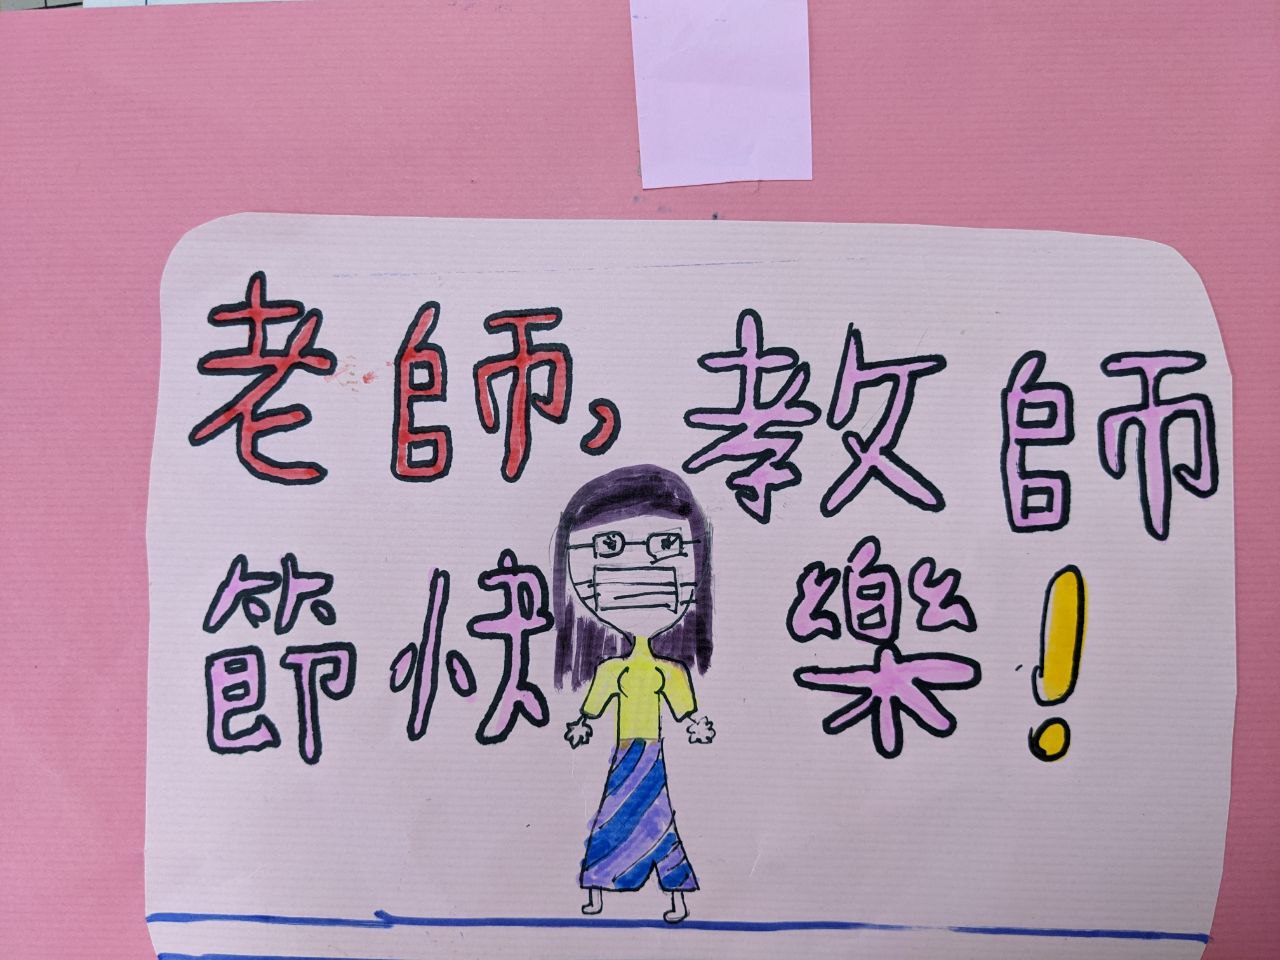 老師,教師
節快樂!